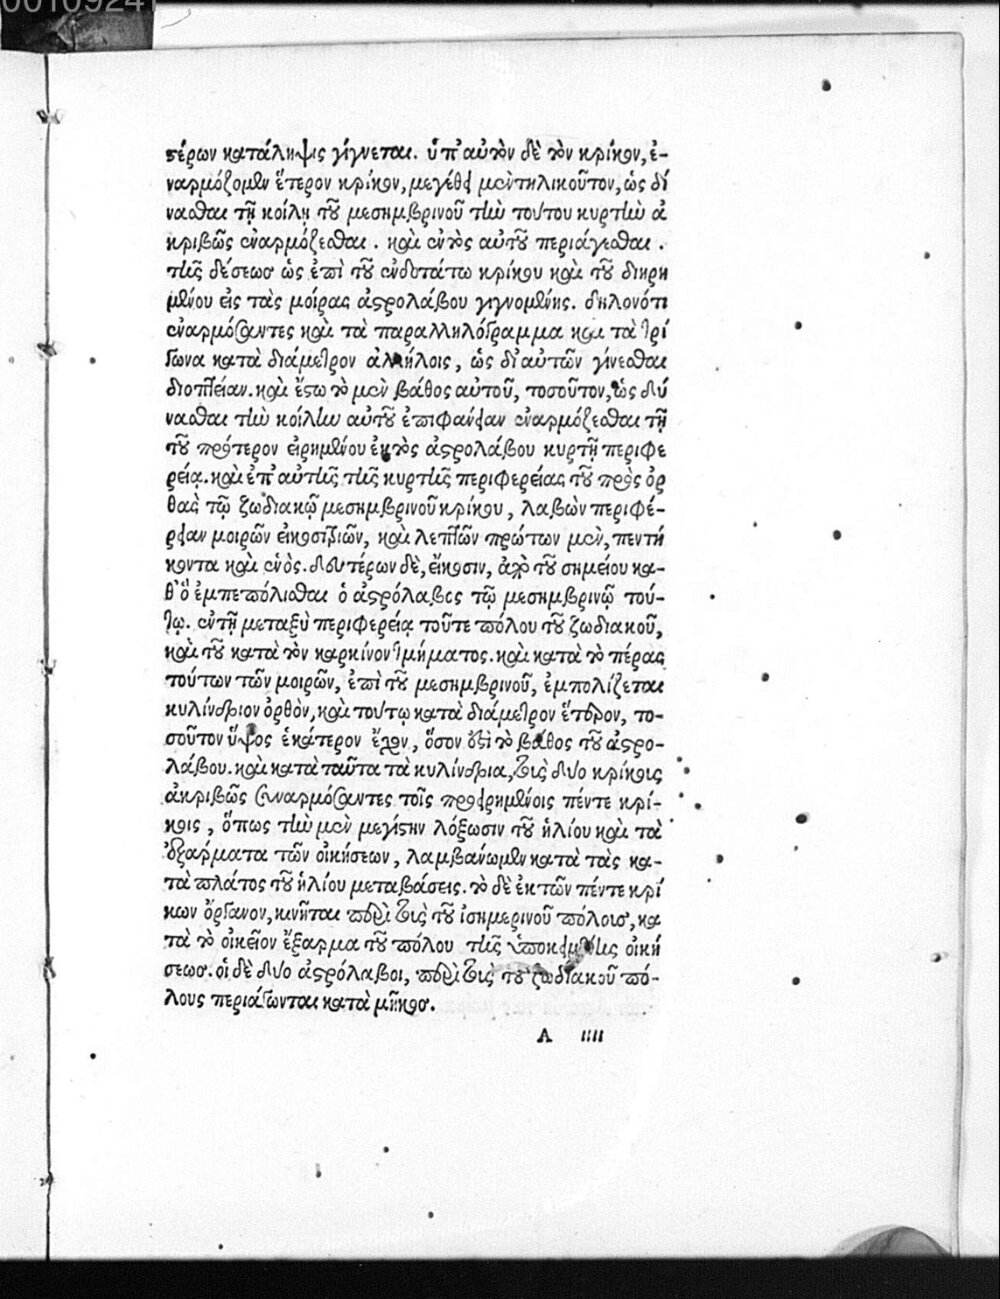 00109241
στέρων κατάληψις γίγνεται. ὑπ' αὐτὸν δὲ τὸν κρίκον, ἐ-
ναρμόζομεν ἕτερον κρίκον, μεγέθει μὲν τηλικοῦτον, ὡς δύ
νασθαι τῇ κοίλῃ τοῦ μεσημβρινοῦ τὴν τούτου κυρτὴν ἀ
κριβῶς ἐναρμόζεσθαι. καὶ ἐντὸς αὐτοῦ περιάγεσθαι.
τῆς δέσεως ὡς ἐπὶ τοῦ ἐνδοτάτω κρίκου καὶ τοῦ διῃρη
μένου εἰς τὰς μοίρας ἀστρολάβου γιγνομένης. δηλονότι
ἐναρμόσαντες καὶ τὰ παραλληλόγραμμα καὶ τὰ τρί
γωνα κατὰ διάμετρον ἀλλήλοις, ὡς δι' αὐτῶν γίνεσθαι
διοπτείαν. καὶ ἔστω τὸ μὲν βάθος αὐτοῦ, τοσοῦτον, ὡς δύ
νασθαι τὴν κοίλην αὐτοῦ ἐπιφάνειαν ἐναρμόζεσθαι τῇ
τοῦ πρότερον εἰρημένου ἐκτὸς ἀστρολάβου κυρτῇ περιφε
ρείᾳ. καὶ ἐπ' αὐτῆς τῆς κυρτῆς περιφερείας τοῦ πρὸς ὀρ
θὰς τῷ ζωδιακῷ μεσημβρινοῦ κρίκου, λαβὼν περιφέ-
ρειαν μοιρῶν εἰκοσιτριῶν, καὶ λεπτῶν πρώτων μὲν, πεντή
κοντα καὶ ἑνὸς. δευτέρων δὲ, εἴκοσιν, ἀπὸ τοῦ σημείου κα-
θ' ὃ ἐμπεπόλισθαι ὁ ἀστρόλαβος τῷ μεσημβρινῷ τού-
τῳ. ἐν τῇ μεταξὺ περιφερείᾳ τοῦτε πόλου τοῦ ζωδιακοῦ,
καὶ τοῦ κατὰ τὸν καρκίνον τμήματος. καὶ κατὰ τὸ πέρας
τούτων τῶν μοιρῶν, ἐπὶ τοῦ μεσημβρινοῦ, ἐμπολίζεται
κυλίνδριον ὀρθὸν, καὶ τούτῳ κατὰ διάμετρον ἕτερον, το-
σοῦτον ὕψος ἑκάτερον ἔχον, ὅσον ἐστὶ τὸ βάθος τοῦ ἀστρο-
λάβου. καὶ κατὰ ταῦτα τὰ κυλίνδρια, τοῖς δυο κρίκοις
ἀκριβῶς συναρμόσαντες τοῖς προειρημένοις πέντε κρί-
κοις, ὅπως τὴν μὲν μεγίστην λόξωσιν τοῦ ἡλίου καὶ τὰ
ἐξάρματα τῶν οἰκήσεων, λαμβάνωμεν κατὰ τὰς κα-
τὰ πλάτος τοῦ ἡλίου μεταβάσεις. τὸ δὲ ἐκ τῶν πέντε κρί
κων ὄργανον, κινῆται περὶ τοὺς τοῦ ἰσημερινοῦ πόλους, κα
τὰ τὸ οἰκεῖον ἔξαρμα τοῦ πόλου τῆς ὑποκειμένης οἰκή
σεως. οἱ δὲ δυο ἀστρόλαβοι, περὶ τοὺς τοῦ ζωδιακοῦ πό-
λους περιάγωνται κατὰ μῆκος.
A iiii